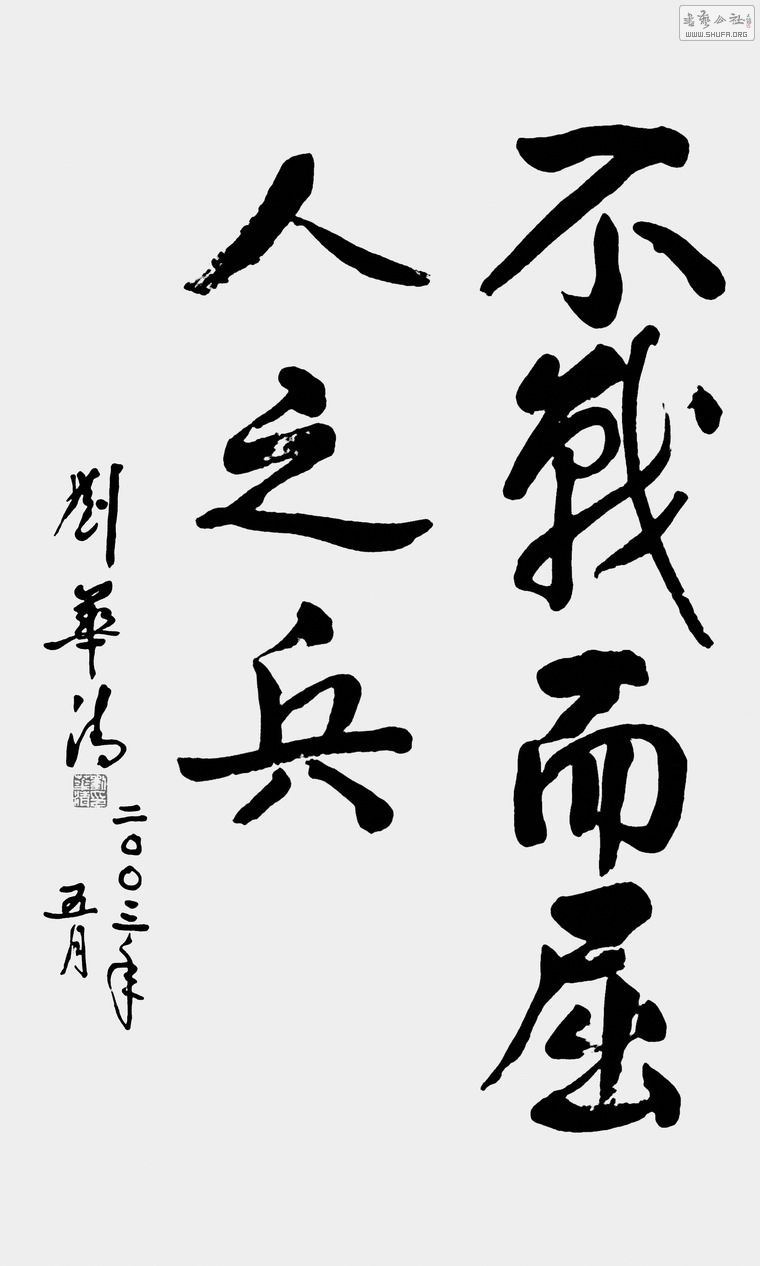 不戰而屈
人之兵
劉華清
二〇〇三年
五月
書藝公社
WWW.SHUFA.ORG